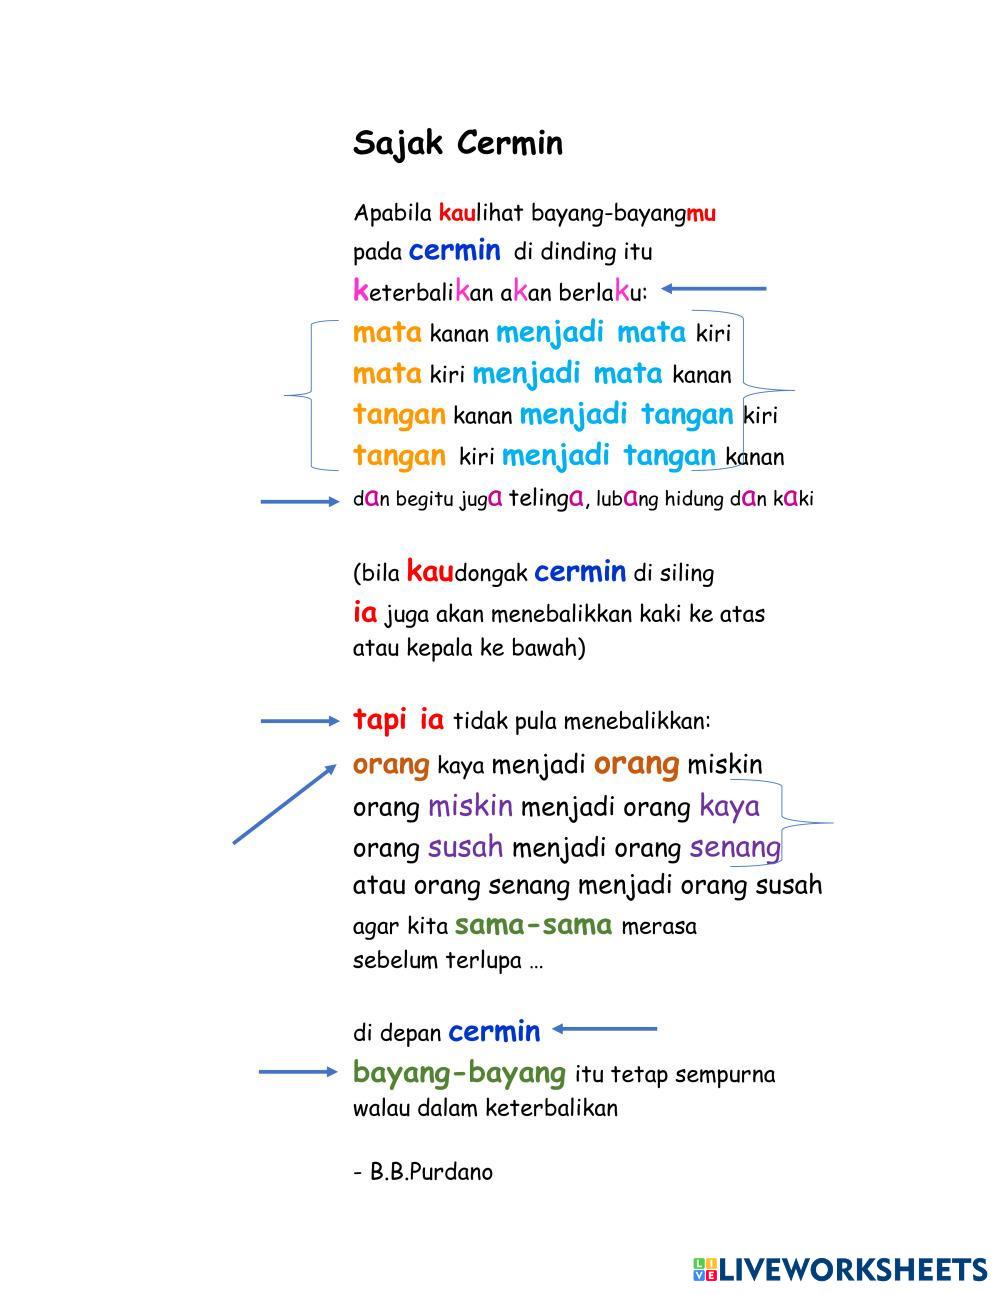 Sajak Cermin
Apabila kaulihat bayang-bayangmu
pada cermin di dinding itu
keterbaliKan aKan berlaKu:
mata kanan menjadi mata kiri
mata kiri menjadi mata kanan
tangan kanan menjadi tangan kiri
tangan kiri menjadi tangan kanan
dan begitu juga telinga, lubang hidung dan kaki
(bila kaudongak cermin di siling
ia juga akan menebalikkan kaki ke atas
atau kepala ke bawah)
tapi ia tidak pula menebalikkan:
orang kaya menjadi orang miskin
orang miskin menjadi orang kaya
orang susah menjadi orang senang
atau orang senang menjadi orang susah
agar kita sama-sama merasa
sebelum terlupa ...
di depan cermin
bayang-bayang itu tetap sempurna
walau dalam keterbalikan
- B.B.Purdano
LIVE LIVEWORKSHEETS